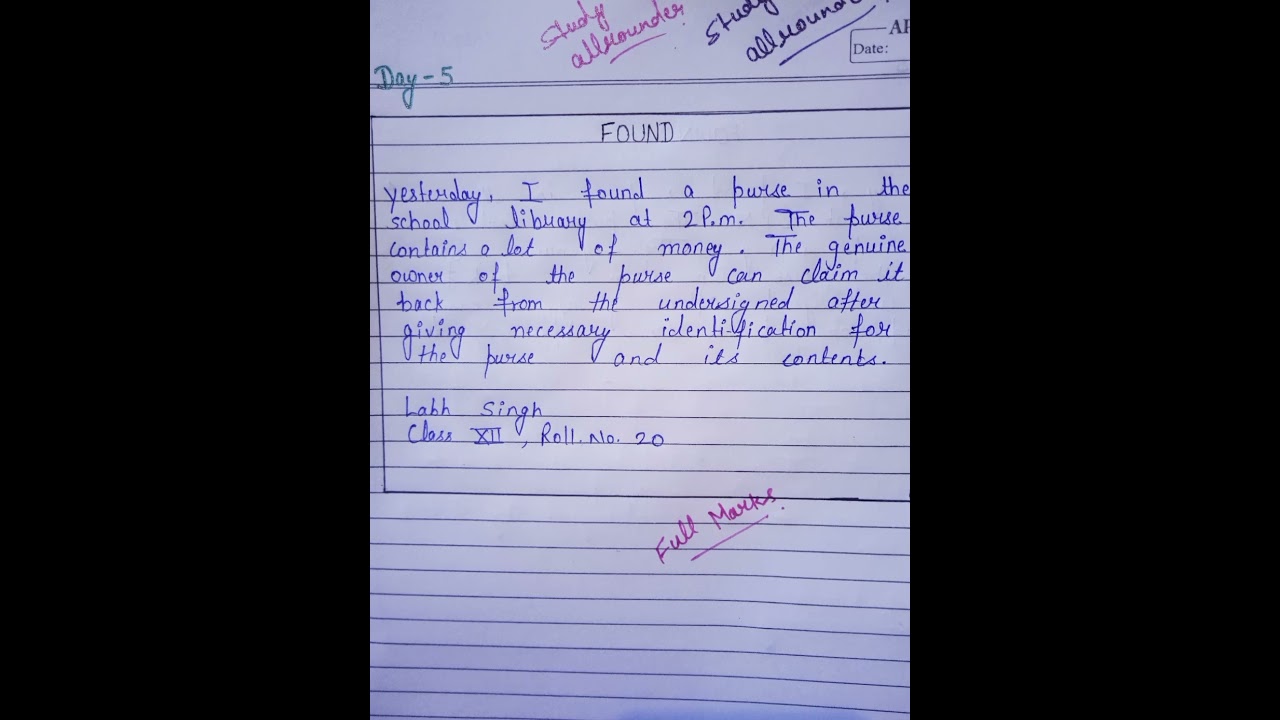 Study
allrounder
Study
allrounder
Date:
Day-5
FOUND
yesterday, I found a purse in the
school library at 2P.m. The purse
contains a lot of money. The genuine
owner of the purse can claim it
back from the undersigned after
giving necessary identification for
the purse and its contents.
Labh Singh
Class XII, Roll. No. 20
Full Marks.